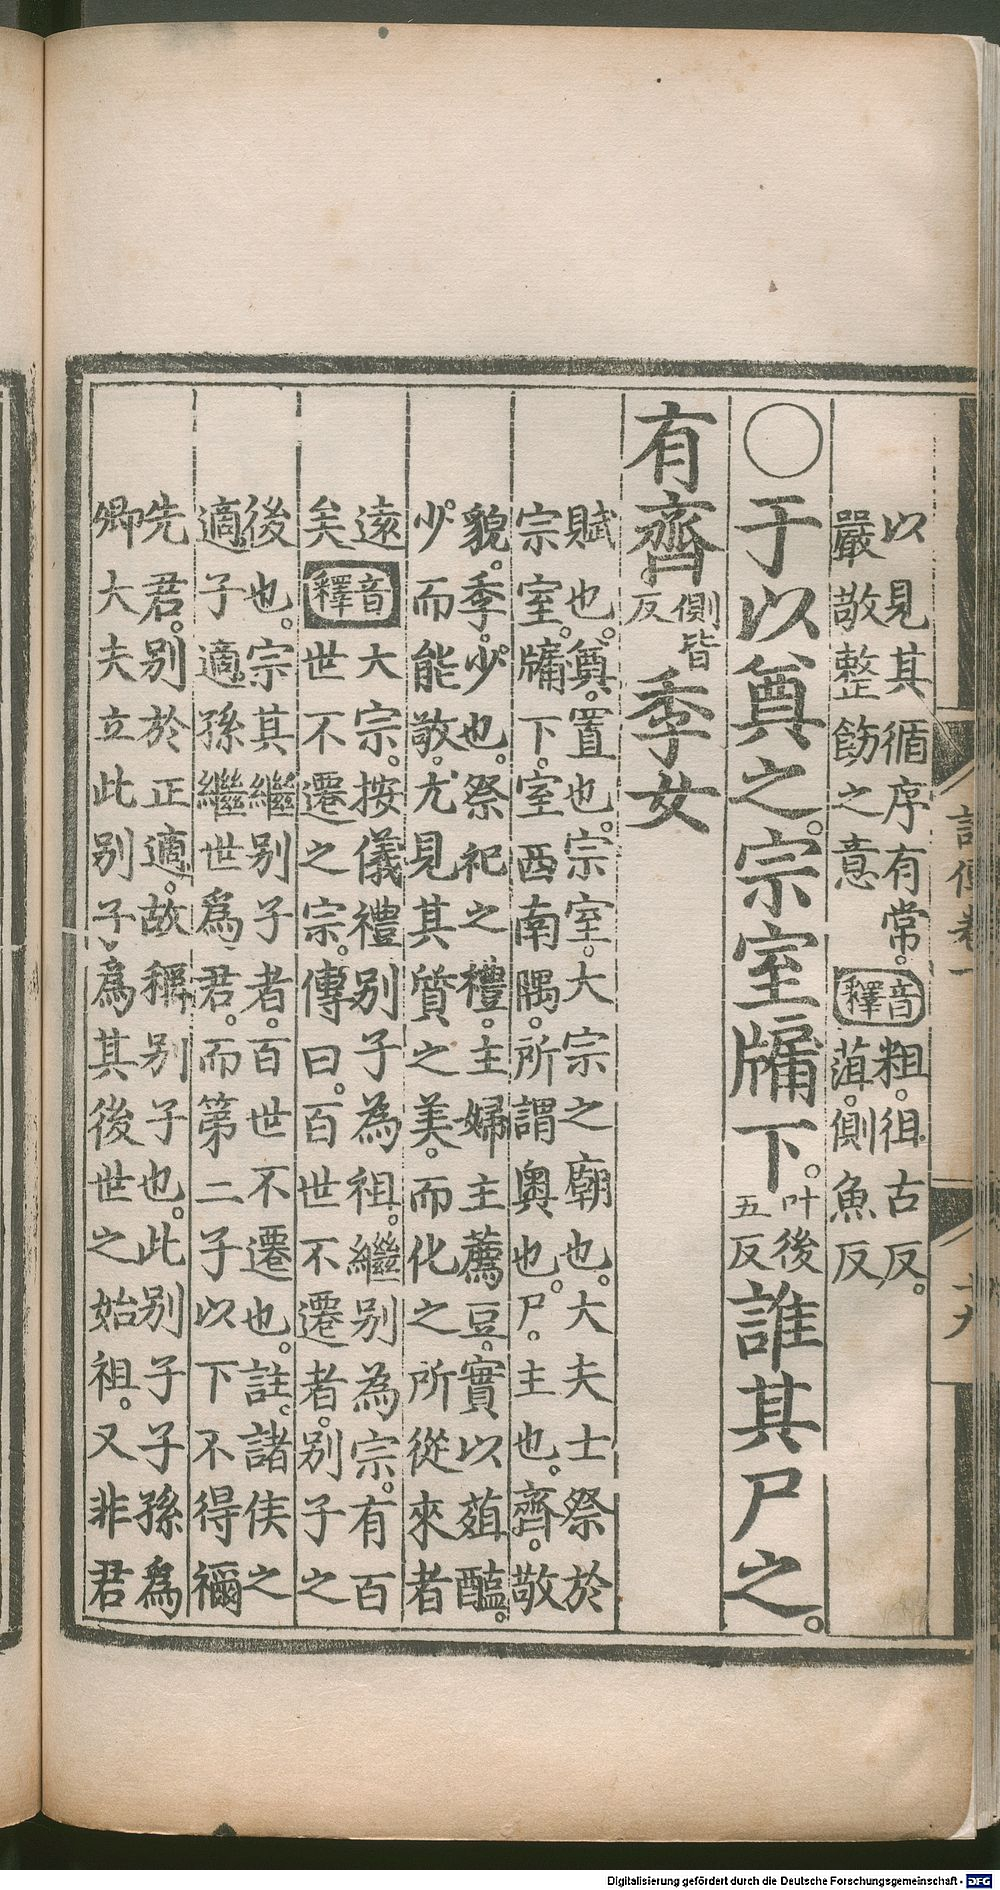 以見其循序有常。音釋粗。徂古反。
嚴敬整飭之意 菹。側魚反
○于以奠之。宗室牖下。叶後五反誰其尸之。
有齊側皆反季女
賦也。奠。置也。宗室。大宗之廟也。大夫士祭於
宗室。牖下。室西南隅。所謂奧也。尸。主也。齊。敬
貌。季。少也。祭祀之禮。主婦主薦豆。實以葅醢。
少。而能敬。尤見其質之美。而化之所從來者
遠矣音釋大宗。按儀禮別子為祖。繼別為宗。有百
世不遷之宗。傳曰。百世不遷者。別子之
後也。宗其繼別子者。百世不遷也。註。諸侯之
適子適孫繼世爲君。而第二子以下不得禰
先君。別於正適。故稱別子也。此別子子孫爲
卿大夫立此別子爲其後世之始祖。又非君
詩傳卷一
十九
Digitalisierung gefördert durch die Deutsche Forschungsgemeinschaft - DFG